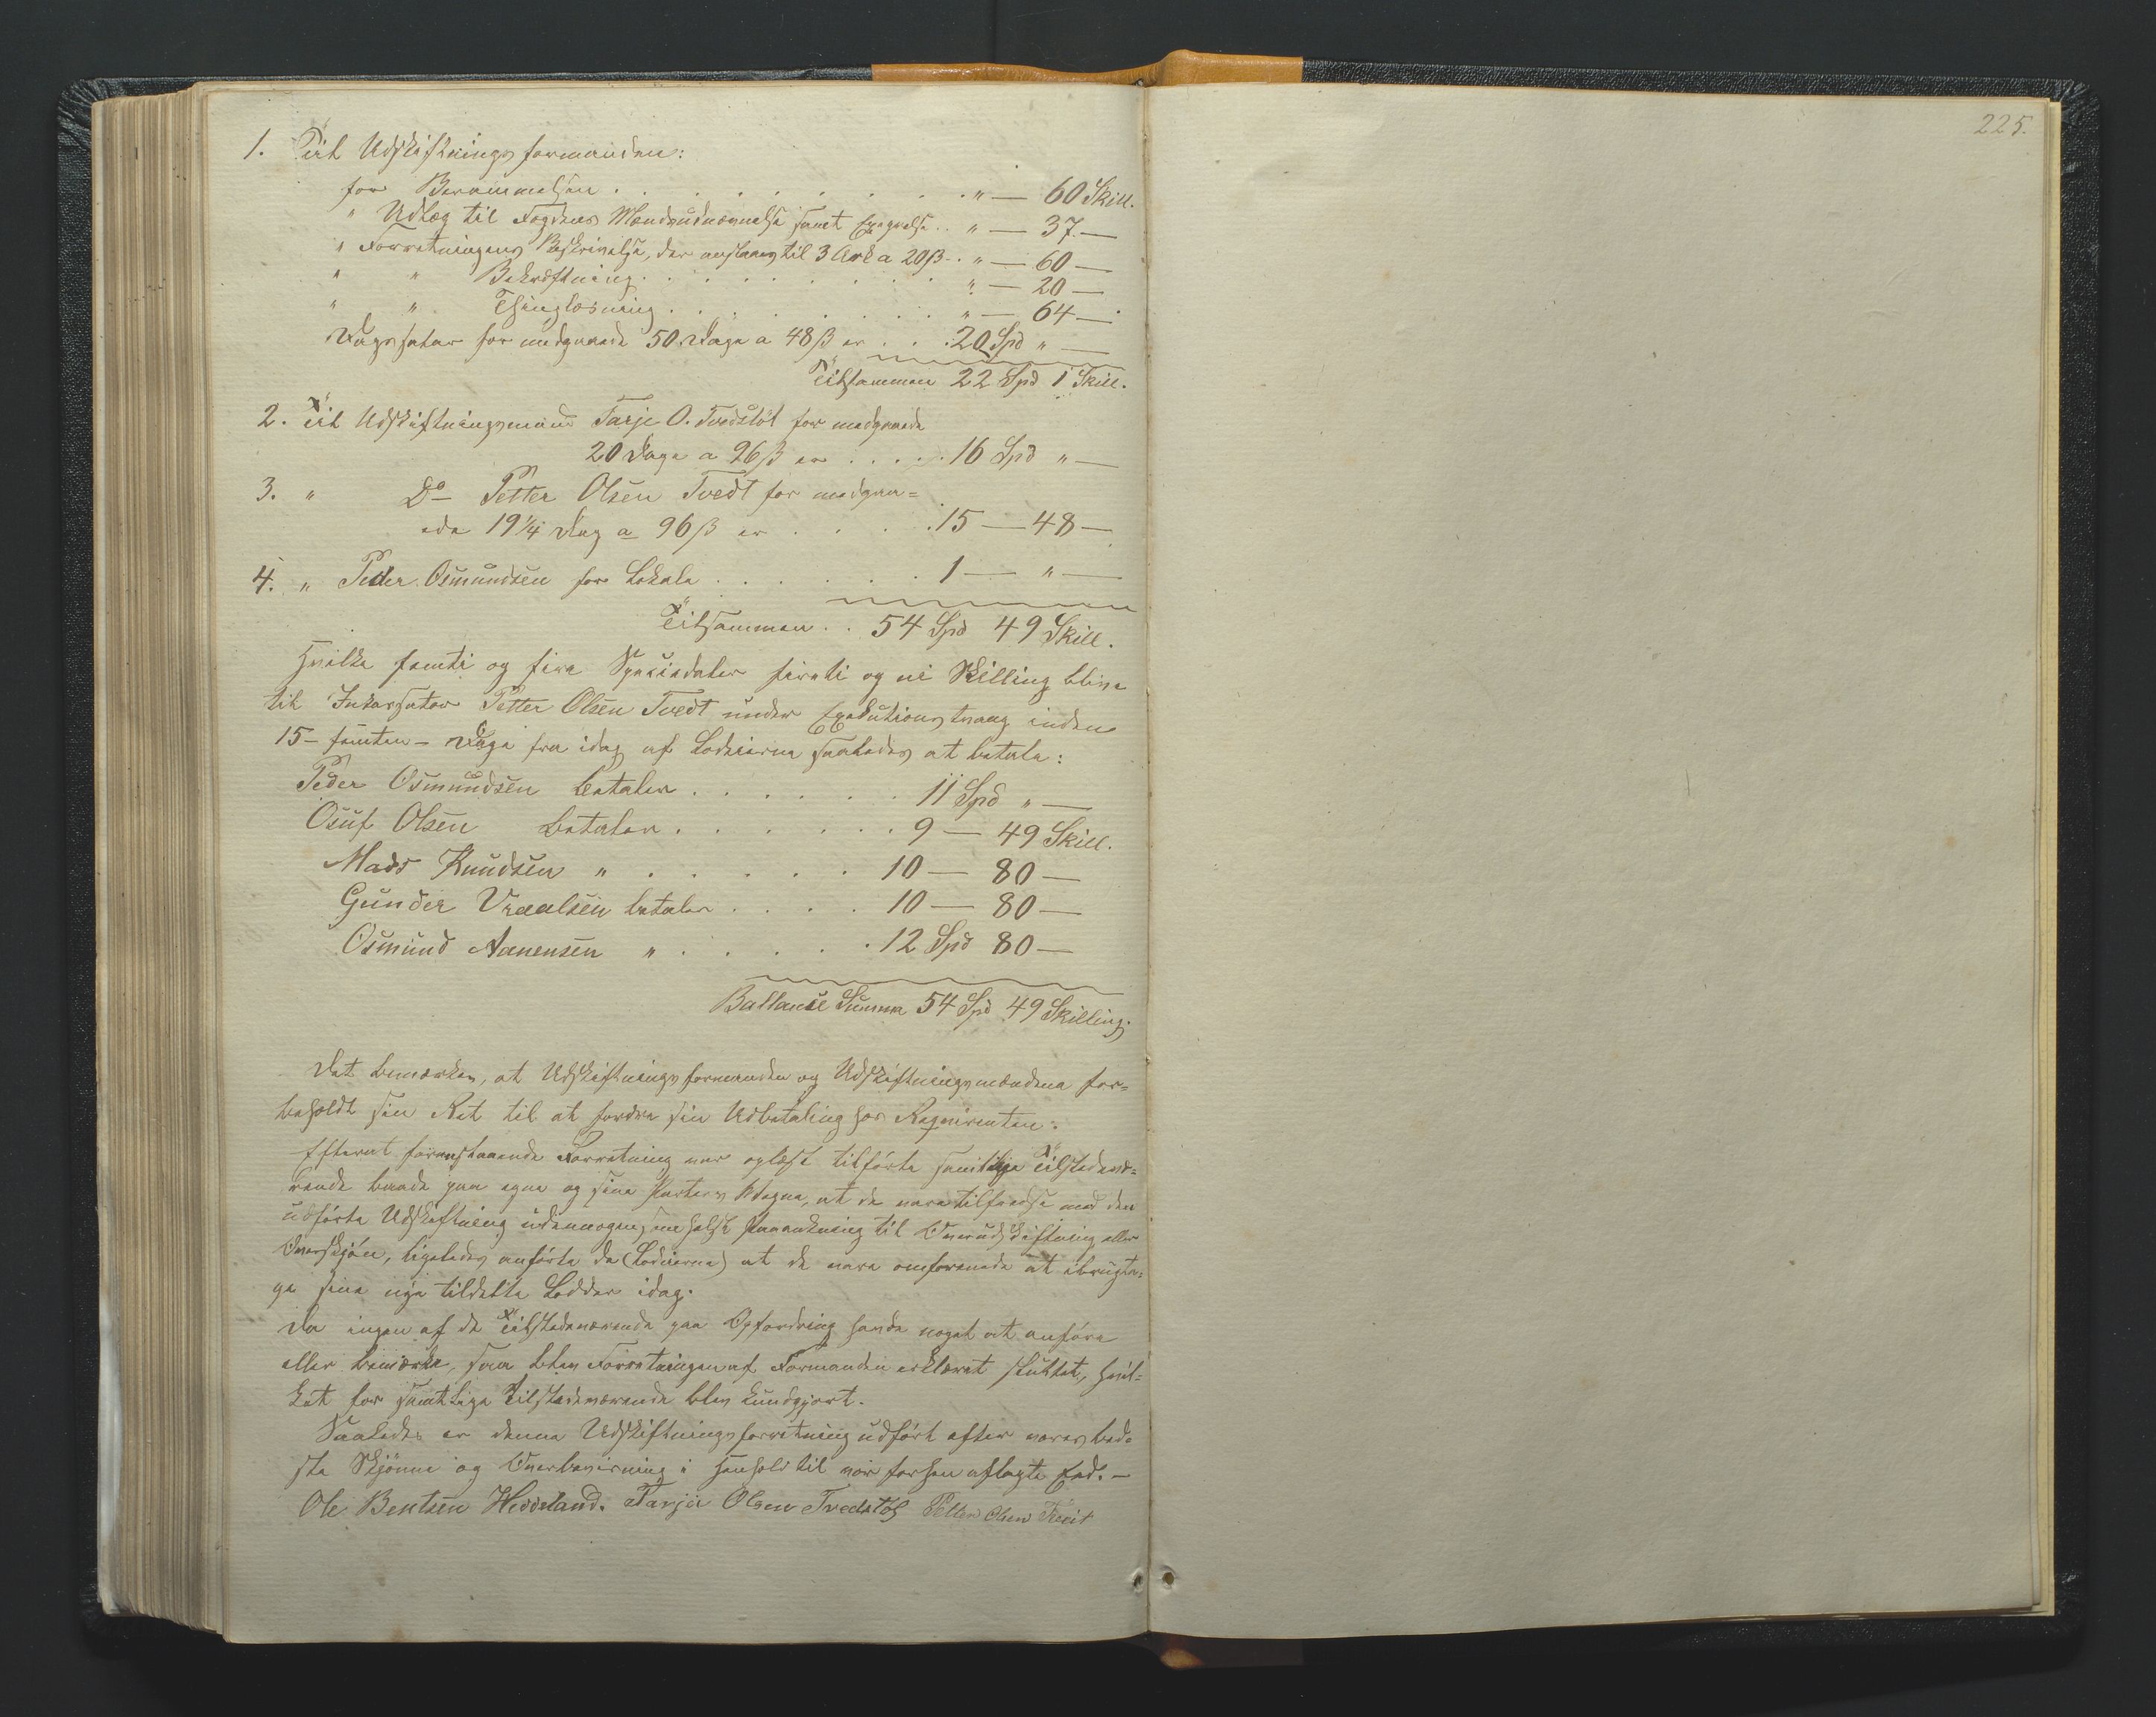 1. Til Udskiftningsformanden:
for Berammelsen . . . . . . . . . . " — 60 Skill.
" Udlæg til Fogdens Mændsudnævnelse samt Expeguelse . . " — 37. —
" Forretningens Beskrivelse, der anslaaes til 3 Ark a 20 β . . " — 60 —
" " Bekræftning . . . . . . . . " — 20 —
" " Thinglæsning . . . . . . . . " — 64 —
Dagsatser for medgaaede 50 Dage a 48 β er . . . 20 Spd " —
Tilsammen 22 Spd 1 Skill.
2. Til Udskiftningsmand Tarje O. Tvedstöl for medgaaede
20 Dage a 96 β er . . . . . 16 Spd " —
3. " Do Petter Olsen Tvedt for medgaa=
ede 19 1/4 Dag a 96 β er . . . . . 15 — 48 —
4. " Peder Osmundsen for Lokale . . . . . . . 1 — " —
Tilsammen . . 54 Spd 49 Skill.
Hvilke femti og fire Speciedaler fireti og ni Skilling blive
til Inkassator Petter Olsen Tvedt under Exekutionstvang inden
15 - femten - Dage fra idag af Lodeierne saaledes at betale:
Peder Osmundsen betaler . . . . . . 11 Spd " —
Osuf Olsen betaler . . . . . . . 9 — 49 Skill.
Mads Knudsen " . . . . . . 10 — 80 —
Gunder Vraalsen betaler . . . . 10 — 80 —
Osmund Aanensen " . . . . . . 12 Spd 80 —
Ballance Summa 54 Spd 49 Skilling.
Det bemærkes, at Udskiftningsformanden og Udskiftningsmændene for=
beholdt sin Ret til at fordre sin Udbetaling hos Reqvirenten.
Efterat foranstaaende Forretning var oplæst tilförte samtlige Tilstedevæ=
rende baade paa egne og sine Parters Vegne, at de vare tilfredse med den
udförte Udskiftning uden nogensomhelst Paaankning til Overudskiftning eller
Overskjön, ligeledes anförte de (Lodeierne) at de vare omforenede at ibrugta=
ge sine nye tildelte Lodder idag.
Da ingen af de Tilstedeværende paa Opfordring havde noget at anföre
eller bemærke, saa blev Forretningen af Formanden erklæret sluttet, hvil=
ket for samtlige Tilstedeværende blev kundgjort.
Saaledes er denne Udskiftningsforretning udfört efter vores bed=
ste Skjönne og Overbevisning i Henhold til vor forhen aflagte Eed. —
Ole Bentsen Hesseland. Tarjei Olsen Tvedstöl Petter Olsen Tvedt
225.